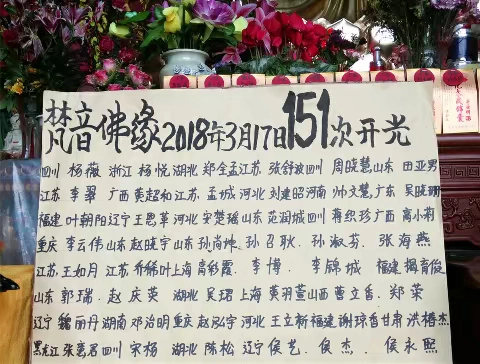 梵音佛缘2018年3月17日151次开光
四川 杨薇 浙江 杨悦 湖北 郑全孟 江苏 张舒波 四川 周晓慧 山东 田亚男
江苏 李翠 广西 黄超和 江苏 孟城 河北 刘建昭 河南 帅文慧 广东 吴晓珊
福建 叶朝阳 辽宁 王思革 河北 宋楚瑶 山东 范润城 四川 蒋织珍 广西 高小莉
重庆 李云伟 山东 赵晓宇 山东 孙尚坤 孙召耿 孙淑芬 张海燕
江苏 王如月 江苏 乔稀叶 上海 高彩霞 李博 李锦城 福建 揭育俊
山东 郭瑞 赵庆英 湖北 吴珺 上海 黄羽萱 山西 曹立香 郑荣
辽宁 魏丽丹 湖南 邓治明 重庆 赵泓宇 河北 王立新 福建 谢琼香 甘肃 洪椿杰
黑龙江 张 君 四川 宋杨 湖北 陈松 辽宁 侯艺 侯杰 侯永熙